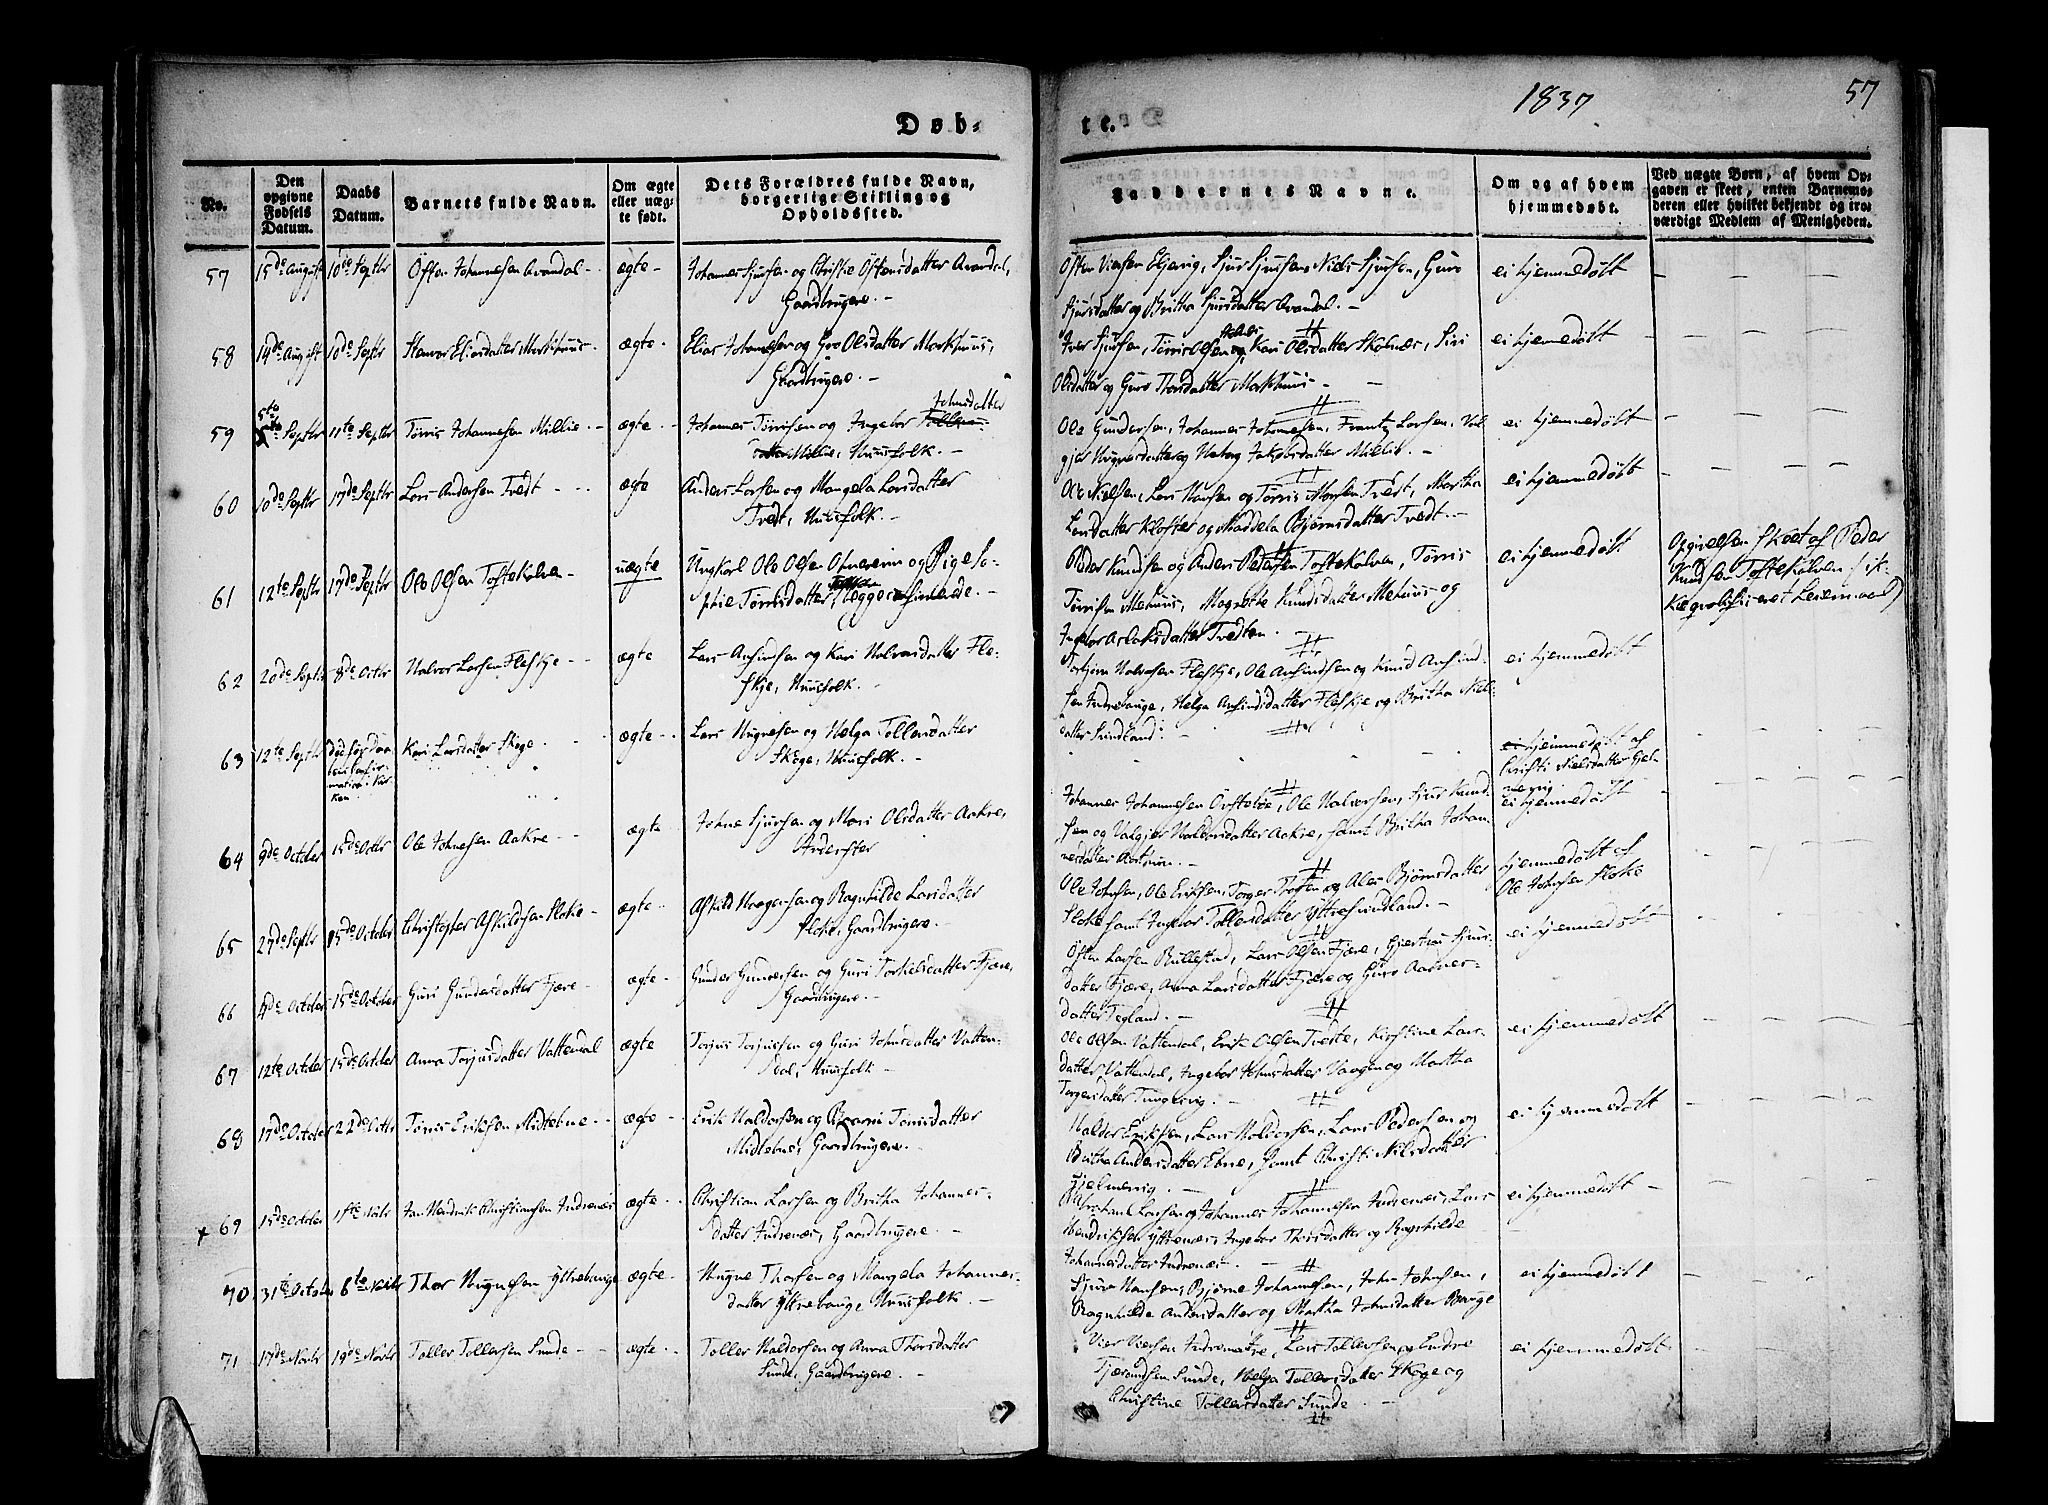 1837
57
Døb-
te.
No.
Den opgivne Fødsels Datum.
Daabs Datum.
Barnets fulde Navn.
Om ægte eller uægte født.
Dets Forældres fulde Navn, borgerlige Stilling og Opholdssted.
Faddernes Navne.
Om og af hvem hjemmedøbt.
Ved uægte Børn, af hvem Opgaven er skeet, enten Barnemoderen eller hvilket bekjendt og troværdigt Medlem af Menigheden.
57 15de August 10de Septbr Østen Johannesen Qvandal ægte Johannes Sjursen og Christie Østensdatter Qvandal,
Gaardbrugere.
Sjur Sjursen, Niels Sjursen, Guro
Sjursdatter og Britha Sjursdatter Qvandal.
ei hjemmedøbt
58 14de August 10de Septbr Eliasdatter Markhuus ægte Elias Johannesen og Gro Olsdatter Markhuus,
Gaardbrugere.
Iver Sjursen, Tørris Olsen og Kari Olsdatter Skolnæs, Siri
Olsdatter og Guro Thorsdatter Markhuus
ei hjemmedøbt
59 5te Septbr 17te Septbr Tørris Johannesen Millie ægte Johannes Tørrisen og Ingebor Johnsdatter
Millie, Huusfolk.
Ole Gundersen, Johannes Johannesen, Frantz Larsen, Val-
gjer og Jakobsdatter Millie.
ei hjemmedøbt
60 10de Septbr 17de Septbr Lars Andersen Tvedt ægte Anders Larsen og Mangela Larsdatter
Tvedt, Huusfolk.
Ole Nielsen, Lars Hansen og Tørris Monsen Tvedt, Martha
Larsdatter Kloster og Maddela Bjørnsdatter Tvedt.
ei hjemmedøbt
61 12te Septbr 17de Septbr Ole Olsen Toftekalven uægte Ungkarl Ole Olsen og Pige So-
phie Tørrisdatter
Peder Knudsen og Anders Pedersen Toftekalven, Tørris
Tørrisen Mehuus, Magrethe Knudsdatter Mehuus og
Ingebor Aslaksdatter Tvedten.
ei hjemmedøbt
Opgivelsen skeet af Peder
Knudsen Toftekalven (ik-
ke Leiermaal)
62 20de Septbr 8de Octbr Halvor Larsen Fleskje ægte Lars Ansindsen og Kari Halvorsdatter Fle-
skje, Huusfolk.
Torbjørn Halvorsen Fleskje, Ole Ansindsen og Knud Ansind-
sen Indrehauge, Helga Ansindsdatter Fleskje og Britha Niels-
datter Sundland
ei hjemmedøbt
63 12te Septbr Kari Larsdatter Skoge ægte Lars Hugnesen og Helga Tollersdatter
Skoge, Huusfolk.
hjemmedøbt af
Christi Nielsdatter Hel-
mervig
64 9de October 15de Octbr Ole Johnesen Aakre ægte Johne Sjursen og Mari Olsdatter Aakre,
Inderster
Johannes Johannesen Ørstole, Ole Halvorsen, Sjur Knud-
sen og Valgjer Haldorsdatter Aakre, samt Britha Johan-
nesdatter
ei hjemmedøbt
65 27de Septbr 15de October Christopher Askildsen Floke ægte Askild Haagensen og Ragnhilde Larsdatter
Floke, Gaardbrugere.
Ole Johnsen, Ole Eriksen, Torger Trosen og Ales Bjørnsdatter
Floke samt Ingebor Tollersdatter Yttresundland.
hjemmedøbt af
Ole Johnsen Floke
66 4de October 15de October Guri Gundersdatter Fjære ægte Gunder Gundersen og Guri Torkelsdatter Fjære,
Gaardbrugere.
Østen Larsen Rullestad, Lars Olsen Fjære, Gjertrui Sjurs-
datter Fjære, Anna Larsdatter Fjære og Guro Aadner-
datter Tegland.
ei hjemmedøbt
67 12te October 15de October Anna Torjusdatter Vattendal ægte Torjus Torjussen og Guri Johnsdatter Vatten-
dal, Huusfolk
Ole Olsen Vattendal, Erik Olsen Tveite, Kirstine Lars-
datter Vattendal, Ingebor Johnsdatter Vaagen og Martha
Torgersdatter Tungesvig.
ei hjemmedøbt
68 17de October 22de Octbr Tørris Eriksen Midtebne ægte Erik Haldorsen og Baarni Tørrisdatter
Midtebne, Gaardbrugere.
Haldor Eriksen, Lars Haldorsen, Lars Pedersen og
Britha Andersdatter Ebne, samt Christi Nilsdatter
Hjelmervig.
ei hjemmedøbt
69 15de October 1ste Novbr Jan Hendrik Christiansen Indrenæs ægte Christian Larsen og Britha Johannes-
datter Indrenæs, Gaardbrugere
Abraham Larsen og Johannes Johannesen Indrenæs, Lars
Hendriksen Yttrenæs, Ingebor Thorsdatter og Ragnhilde
Johannesdatter Indrenæs.
ei hjemmedøbt
70. 31te October 6te Novbr Thor Hugnesen Yttrehauge ægte Hugne Thorsen og Mangela Johannes-
datter Yttrehauge, Huusfolk.
Sjurs Hansen, Bjørne Johannesen, John Johnsen,
Ragnhilde Andersdatter og Martha Johnsdatter Bauge
ei hjemmedøbt
71 17de Novbr 19de Novbr Toller Tollersen Sunde ægte Toller Haldorsen og Anna Thorsdatter
Sunde, Gaardbrugere.
Vier Viersen Indrematre, Lars Tollersen og Endre
Tjerandsen Sunde, Helga Tollersdatter Skoge og
Christine Tollersdatter Sunde
ei hjemmedøbt